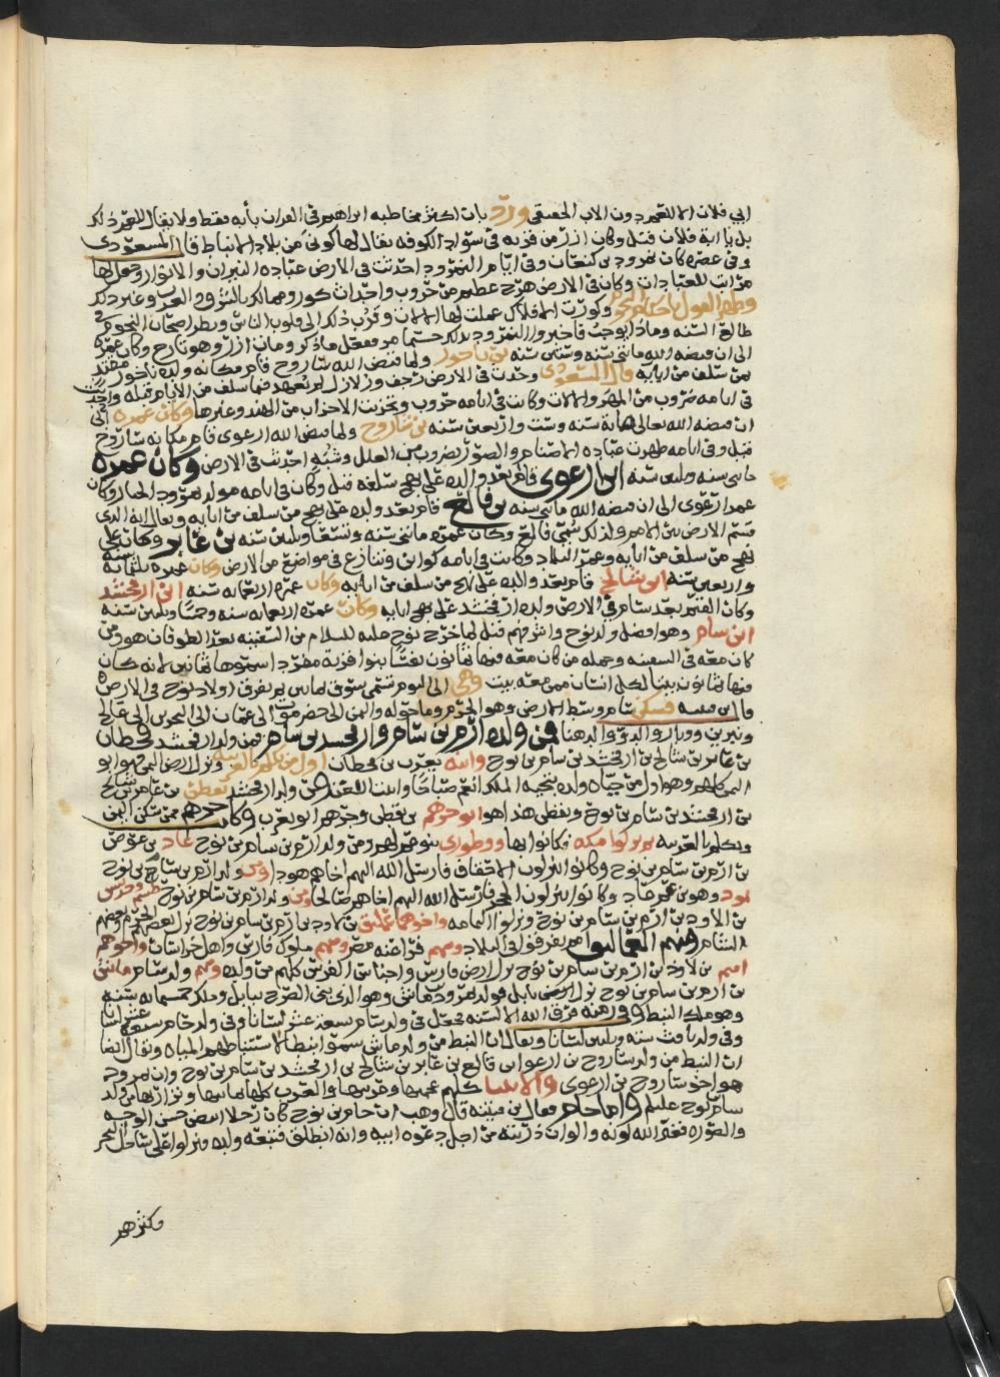 ابي فلان الا للعم دون الاب الحقيقي ورد بان اكثر مخاطبه ابراهيم في القران بأبه فقط ولا يقال للعم ذلك
بل يا ابة فلان فقيل وكان ازر من قريه في سواد الكوفه يقال لها كوثى من بلاد الانباط قال المسعودى
وفي عصره كان نمرود بن كنعان وفي ايام النمرود احدثت في الارض عباده النيران والانوار وجعل لها
مراتب للعبادات وكان في الارض هرج عظيم من حروب واحداث كور وممالك بالشرق والغرب وغير ذلك
وظهر القول باحكام النجوم وكورت الافلاك عملت لها الالات وقرب ذلك الى قلوب الناس ونظر اصحاب النجوم في
طالع السنه وماذا يوجب فاخبروا النمرود
الى ان قبضه الله مائتي سنه وستين سنه بن ناحور ولما قبض الله ساروح قام مكانه ولده ناحور مقتد
بمن سلف من ابايه قال المسعودى وحدث في الارض رجف وزلازل لم تعهد فيما سلف من الايام قبله واحدث
في ايامه ضروب من المهن والالات وكانت في ايامه حروب وتحزبت الاحزاب من الهند وغيرها وكان عمره الى
ان قبضه الله تعالى مايه سنه وست واربعين سنه بن ساروح ولما قبض الله ارعوى قام مكانه ساروح
فقيل وفي ايامه ظهرت عباده الاصنام والصور لضروب من العلل وشبه احدثت في الارض وكان عمره
مايتي سنه وثلثين سنه ابن ارعوى قام بعد والده على نهج سلفه فقيل وكان في ايامه مولد نمرود الجبار وكان
عمر ارعوى الى ان قبضه الله مايتي سنه بن فالغ قام بعد والده على نهج من سلف من ابايه ويقال انه الذي
قسم الارض بين الامم ولذلك سمي فالغ وكان عمره مائتي سنه وتسعا وثلثين سنه بن عابر وكان على
نهج من سلف من ابايه وعمر البلاد وكانت في ايامه كوائن وتنازع في مواضع من الارض وكان عمره ثلثمائه سنه
واربعين سنه ابن شالخ قام بعد والده على نهج من سلف من ابايه وكان عمره اربعمائه سنه ابن ارفخشد
وكان القيم بعد سام في الارض ولده ارفخشد على نهج ابايه وكان عمره اربعمائه سنه وخمسا وثلثين سنه
ابن سام وهو افضل ولد نوح واشرفهم فقيل لما خرج نوح عليه السلام من السفينه بعد الطوفان هو ومن
كان معه في السفينه وجمله من كان معه فيها ثمانون نفسا بنوا قرية مفرد اسموها ثمانين لانه كان
فيها ثمانون بيتا لكل انسان ممن معه بيت وهي الى اليوم تسمى سوق ثمانين ثم تفرق اولاد نوح في الارض
قال ابن قتيبه فسكن سام وسط الارض وهو الحرم وما حوله واليمن الى حضرموت الى عمان الى البحرين الى عالج
ويبرين ووبار والدو والدهنا فمن ولده ارم بن سام وارفخشد بن سام فمن ولد ارفخشد قحطان
بن عابر بن شالخ بن ارفخشد بن سام بن نوح وابنه يعرب بن قحطان اول من تكلم بالعربيه ونزل ارض اليمن فهو ابو
اليمن كلهم وهو اول من حياه ولده بتحيه الملك انعم صباحا وابيت اللعن ومن ولد ارفخشد يقطن بن عابر بن شالخ
بن ارفخشد بن سام بن نوح ويقطن هذا هو ابو جرهم بن يقطن وجرهم ابو يعرب وكانت جرهم ممن سكن اليمن
وتكلم بالعربيه ثم نزلوا مكه فكانوا بها ووطورى بنو عم لهم ومن ولد ارم بن سام بن نوح عاد بن عوص
بن ارم بن سام بن نوح وكانوا ينزلون الاحقاف فارسل الله اليهم اخاهم هودا ومن ولد ارم بن سام بن نوح
ثمود وهو بن عم عاد وكانوا ينزلون الحجر فارسل الله اليهم اخاهم صالحا ومن ولد ارم بن سام بن نوح طسم وجديس
بن الاود بن ارم بن سام بن نوح ونزلوا اليمامه واخوهما عمليق بن لاود بن ارم بن سام بن نوح نزل بعضهم الحرم وبعضهم
الشام فمنهم العماليق امم تفرقوا في البلاد ومنهم فراعنه مصر ومنهم ملوك فارس واهل خراسان واخوهم
اميم بن لاود بن ارم بن سام بن نوح نزل ارض فارس واجناس الفرس كلهم من ولده ومنهم ولد سام ماش
بن ارم بن سام بن نوح نزل ارض بابل فولد نمرود بن ماش وهو الذي بنى الصرح ببابل وملك خمسمائه سنه
وهو ملك النبط وفي زمنه فرق الله الالسنه فجعل في ولد سام تسعة عشر لسانا وفي ولد حام سبعه عشر لسانا
وفي ولد يافث سته وثلثين لسانا ويقال ان النبط من ولد ماش سموا نبطا لاستنباطهم المياه ويقال ايضا
ان النبط من ولد ساروح بن ارعوا بن فالغ بن عابر بن شالخ بن ارفخشد بن سام بن نوح وان نمرود
هو اخو ساروح بن ارعوى والانبيا كلهم عجمها وعربها والعرب كلها يمانيها ونزارها من ولد
سام بن نوح عليهم واما حام فقال بن قتيبه قال وهب ان حام بن نوح كان رجلا ابيض حسن الوجه
والصوره فغير الله لونه والوان ذريته من اجل دعوه ابيه وانه انطلق فتبعه ولده فنزلوا على ساحل البحر
وكثرهم